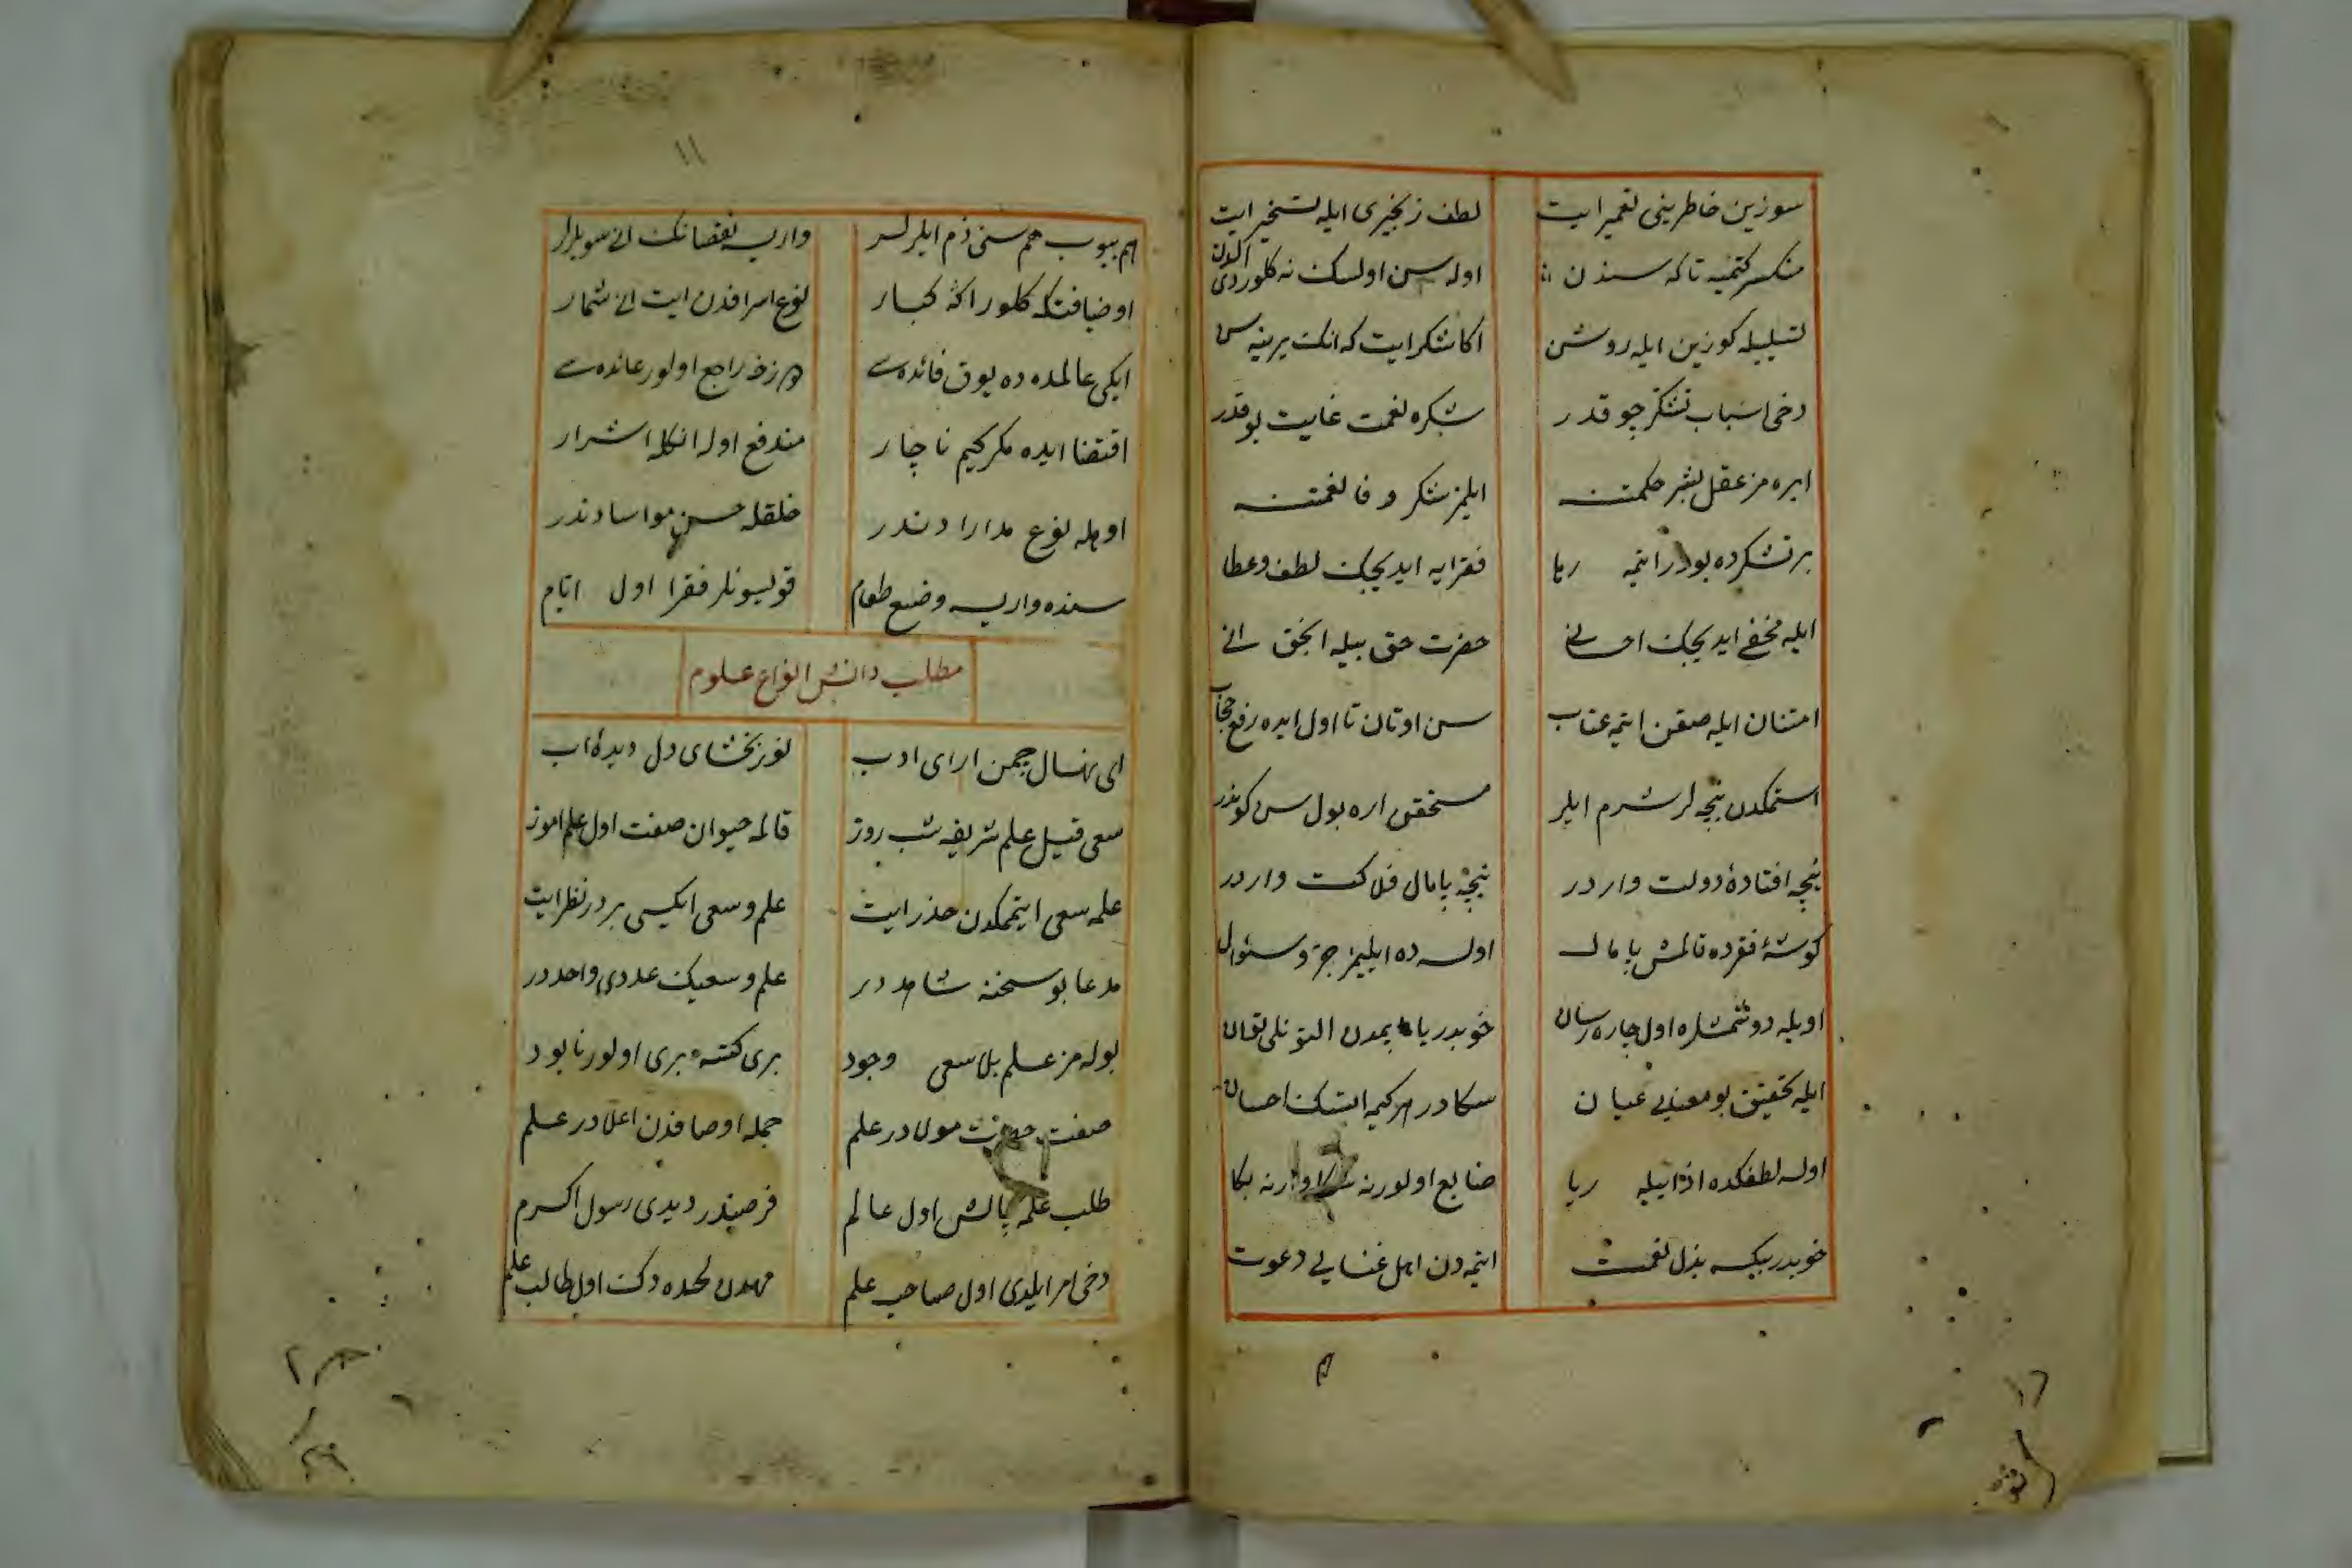 سوزین خاطرینی تعمیر ایت
لطف زنجیری ایله تسخیر ایت
منکسر کتمیه تا که سندن
اوله سن اولسک نه کلوردی الدن
تسلیله کوزین ایله روشن
اکا شکر ایت که انک یرینه سن
دخی اسباب تشکر چوقدر
شکره نعمت غایت یوقدر
ایره مز عقل بشر حکمتنه
ایلمز شکر وفا نعمتنه
بر تشکرده بودر ایتمه ریا
فقرایه ایدیجک لطف و عطا
ایله مخفی ایدیجک احسانی
حضرت حق بیله انجق انی
امتنان ایله صقن ایتمه عتاب
سن اوتان تا اول ایده رفع حجاب
استمکدن نیجه لر شرم ایلر
مستحقن اره بول سن کوندر
نیجه افتادهٔ دولت واردر
نیجه پامال فلاکت واردر
کوشهٔ فقرده قالمش پامال
اولسه ده ایلیمز جر و سئوال
اویله دوشمشلره اول چاره رسان
خوبدر یا یمدن التونلی قان
ایله تحقیق بو معنایی عیان
سکادر هر کیمه ایتسک احسان
اوله لطفکده اذا ایله ریا
ضایع اولور نه سکا وار نه بکا
خوبدر بیکسه بذل نعمت
ایتمه دن اهل غنایی دعوت
هم
۱۱
هم ییوب هم سنی ذم ایلرلر
واریسه نقصانک انی سویلرلر
او ضیافتکه کلور اکثر کبار
نوع اسرافدن ایت انی شمار
ایکی عالمده ده یوق فائده سی
هم زخ راجع اولور عائده سی
اقتضا ایده مکر کیم ناچار
مندفع اوله انکله اشرار
اویله نوع مدارادندر
خلقله حسن مواسادندر
سنده واریسه وضیع طعام
قولیسونلر فقرا اول ایام
مطلب دانش انواع علوم
ای نهال چمن ارای ادب
نور بخشای دل دیدهٔ اب
سعی قیل علم شریفه شب روز
قالمه حیوان صفت اول علم اموز
علمه سعی ایتمکدن حذر ایت
علم و سعی ایکسی بردر نظر ایت
مدعا بو سخنه شاهددر
علم و سعیک عددی واحددر
بوله مز علم بلا سعی وجود
بری کتسه بری اولور نابود
صفت حضرت مولادر علم
جمله اوصافدن اعلادر علم
طلب علمه چالش اول عالم
فرضیندر دیدی رسول اکرم
دخی امر ایلدی اول صاحب علم
مهددن لحده دک اول طالب علم